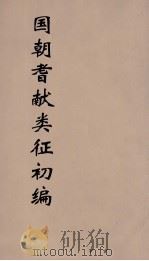 国朝耆献类征初编